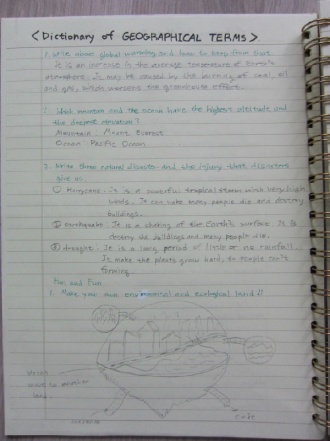 < Dictionary of GEOGRAPHICAL TERMS >
1. Write about global warming and how to keep from that
It is an increase in the average temperature of Earth's
atmosphere. It may be caused by the burning of coal, oil
and gas, which worsens the greenhouse effect.
2. What mountain and the ocean have the highest altitude and
the deepest elevation?
Mountain : Mount Everest
Ocean : Pacific Ocean
3. Write three natural disaster and the injury that disasters
give us.
① Hurricane : It is a powerful tropical storm with very high
winds. It can make many people die and destroy
buildings.
② Earthquake : It is a shaking of the Earth's surface. It is
destroy the buildings and many people die.
③ drought : It is a long period of little or no rainfall.
It make the plants grow hard, so people can't
farming.
Fun and Fun
1. Make your own environmental and ecological land !!
move to another
land.